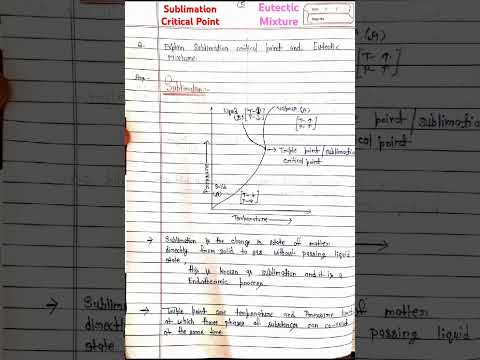 Sublimation
Critical Point
Eutectic
Mixture
Q- Explain Sublimation critical point and Eutectic
Mixture.
Ans-
Sublimation:-
Liquid
(B)
Vapour (A)
Triple point / sublimation
critical point
Solid
(A)
Pressure
Temperature
→ Sublimation is the change in state of matter
directly from solid to gas without passing liquid
state.
This is known as sublimation and it is a
Endothermic process.
→ Triple point are temperature and Pressure
at which three phases of substances can
at the same time.
point
critical point
→ Subli
directl
state
of matter
passing liquid